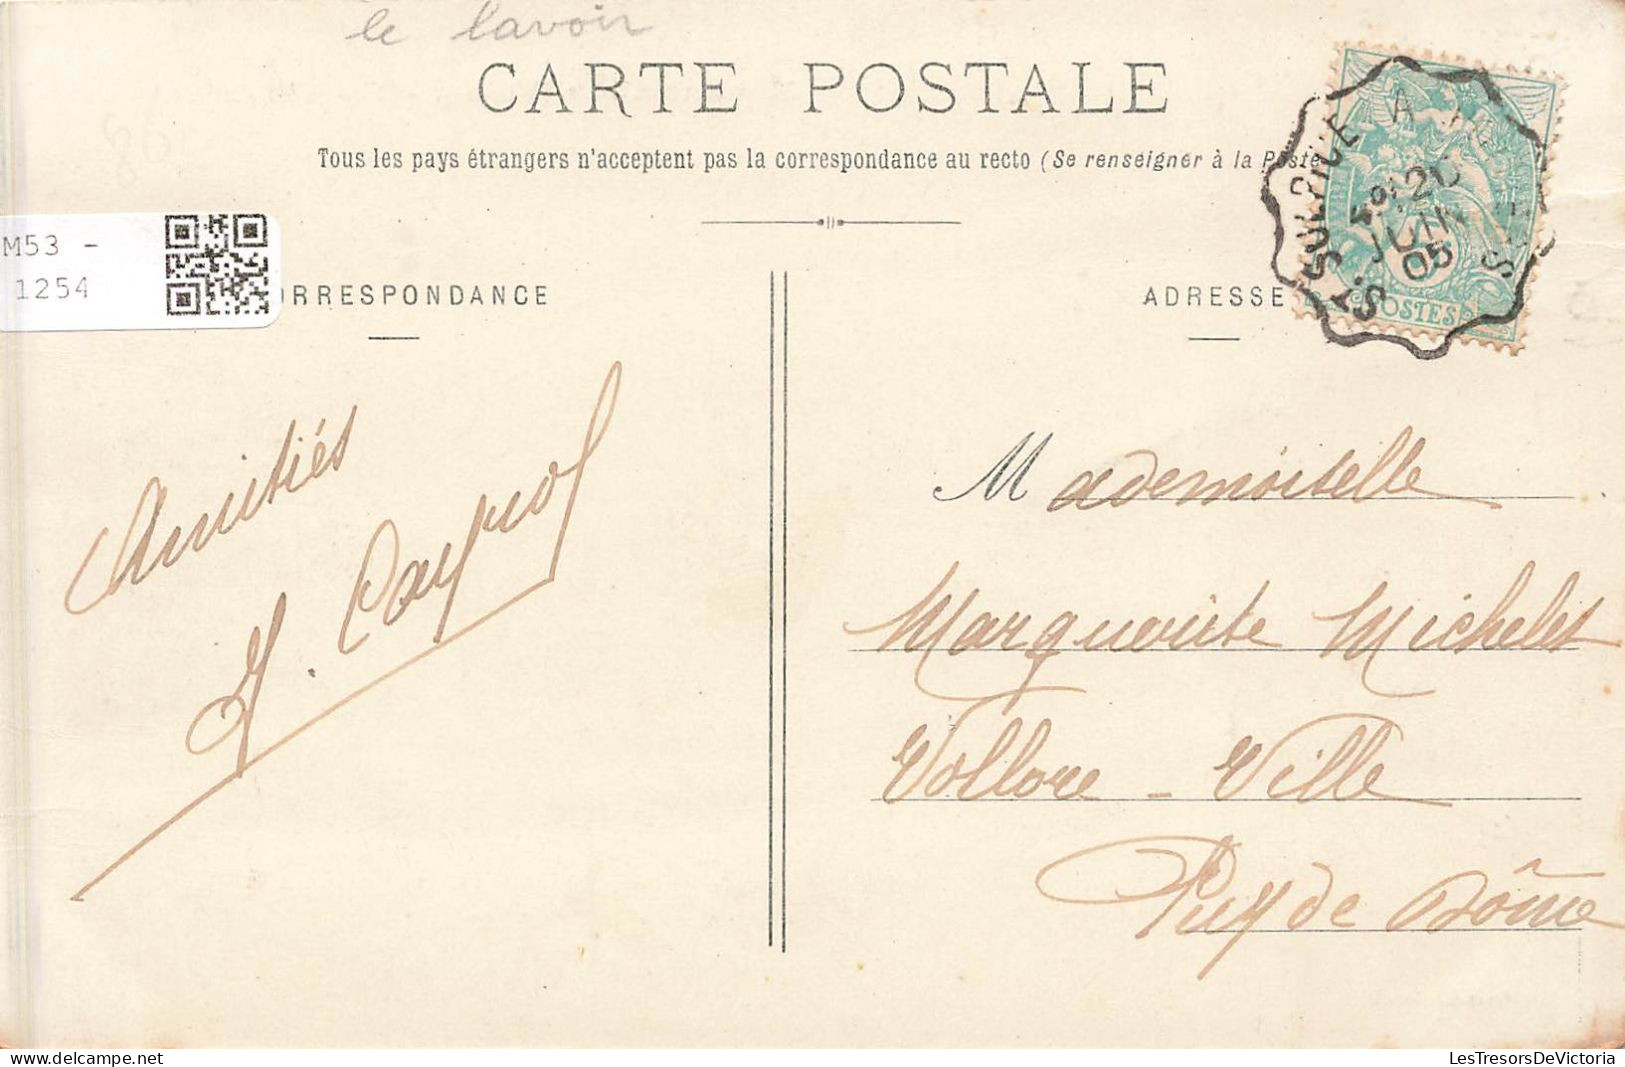 le lavoir
CARTE POSTALE
Tous les pays étrangers n'acceptent pas la correspondance au recto (Se renseigner à la Poste
M53 -
1254
ORRESPONDANCE
ADRESSE
ST SULPICE A
20
JUIN
05
POSTES
Amitiés
Cayrol
Mademoiselle
Marguerite Michelet
Vollore - Ville
Puy de Dôme
LesTresorsDeVictoria